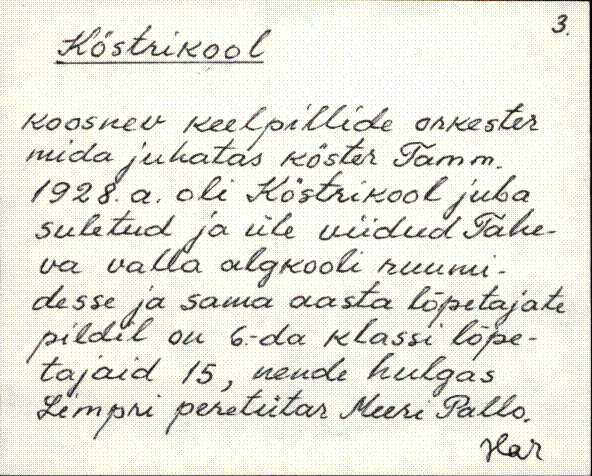 3.
Köstrikool
koosnev keelpillide orkester
mida juhatas köster Tamm.
1928. a. oli Köstrikool juba
suletud ja üle viidud Tahe-
va valla algkooli ruumi-
desse ja sama aasta lõpetajate
pildil on 6.-da klassi lõpe-
tajaid 15, nende hulgas
Limpri peretütar Meeri Pallo.
Har